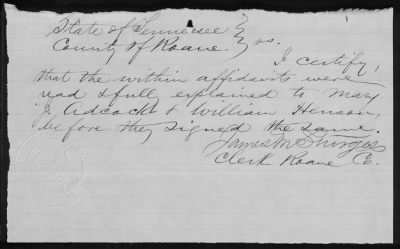 State of Tennessee }
County of Roane. } ss.
I certify,
that the within affidavits were
read & fully explained to Mary
J. Adcock & William Henson,
before they signed the same.
James M Sturges
Clerk Roane Co.